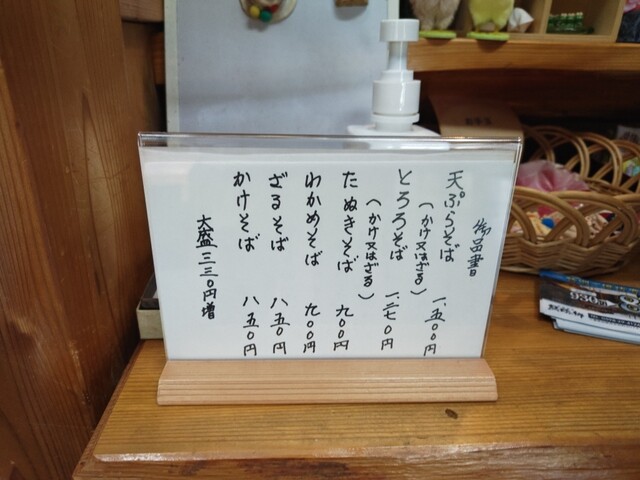 御品書
天ぷらそば 一、五〇〇円
（かけ又はざる）
とろろそば 一、二七〇円
（かけ又はざる）
たぬきそば 九〇〇円
わかめそば 九〇〇円
ざるそば 八五〇円
かけそば 八五〇円
大盛 三三〇円増